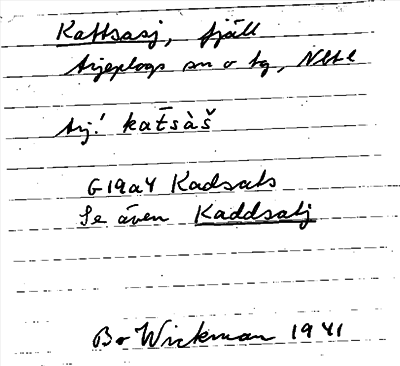 Kattsasj, fjäll
Arjeplogs sn o tg, Nbtl
Arj! kat̄sàš
G19a4 Kadsats
Se även Kaddsatj
Bo Wickman 1941